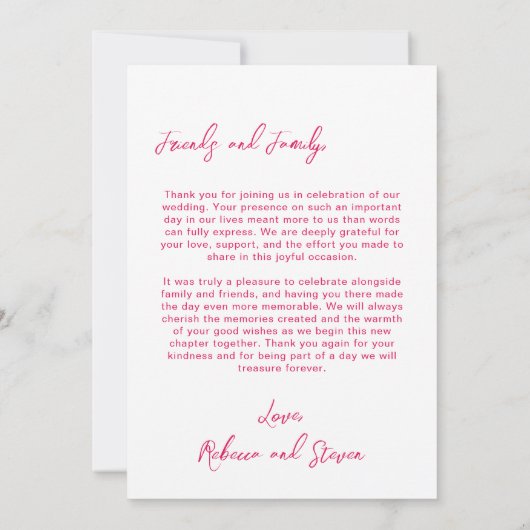 Friends and Family,
Thank you for joining us in celebration of our
wedding. Your presence on such an important
day in our lives meant more to us than words
can fully express. We are deeply grateful for
your love, support, and the effort you made to
share in this joyful occasion.
It was truly a pleasure to celebrate alongside
family and friends, and having you there made
the day even more memorable. We will always
cherish the memories created and the warmth
of your good wishes as we begin this new
chapter together. Thank you again for your
kindness and for being part of a day we will
treasure forever.
Love,
Rebecca and Steven